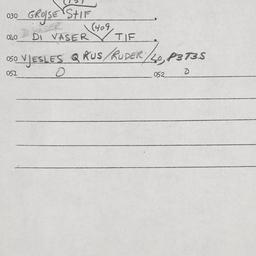 030 GROJSE STIF
(409)
040 DI VASER TIF
050 VJESLES Q RUS/RUDER/LO, P3T3S
052 0 052 0